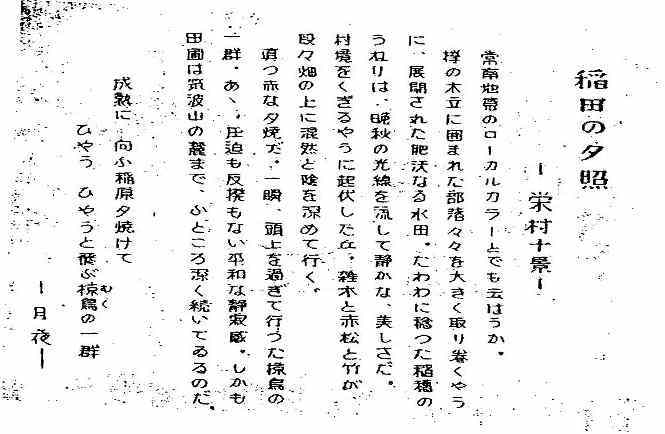 稲田の夕照
ー栄村十景ー
常南地帯のローカルカラーとでも云はうか。
欅の木立に囲まれた部落々々を大きく取り巻くやう
に、展開された肥沃なる水田。たわわに稔つた稲穂の
うねりは、晩秋の光線を流して静かな、美しさだ。
村境をくぎるやうに起伏した丘。雑木と赤松と竹が、
段々畑の上に混然と陰を深めて行く。
真つ赤な夕焼だ。一瞬、頭上を過ぎて行つた椋鳥の
一群。あゝ、圧迫も反撥もない平和な静寂感。しかも
田圃は筑波山の麓まで、ふところ深く続いてゐるのだ。
成熟に向ふ稲原夕焼けて
ひやう ひやうと飛ぶ椋鳥の一群
むく
ー月夜ー